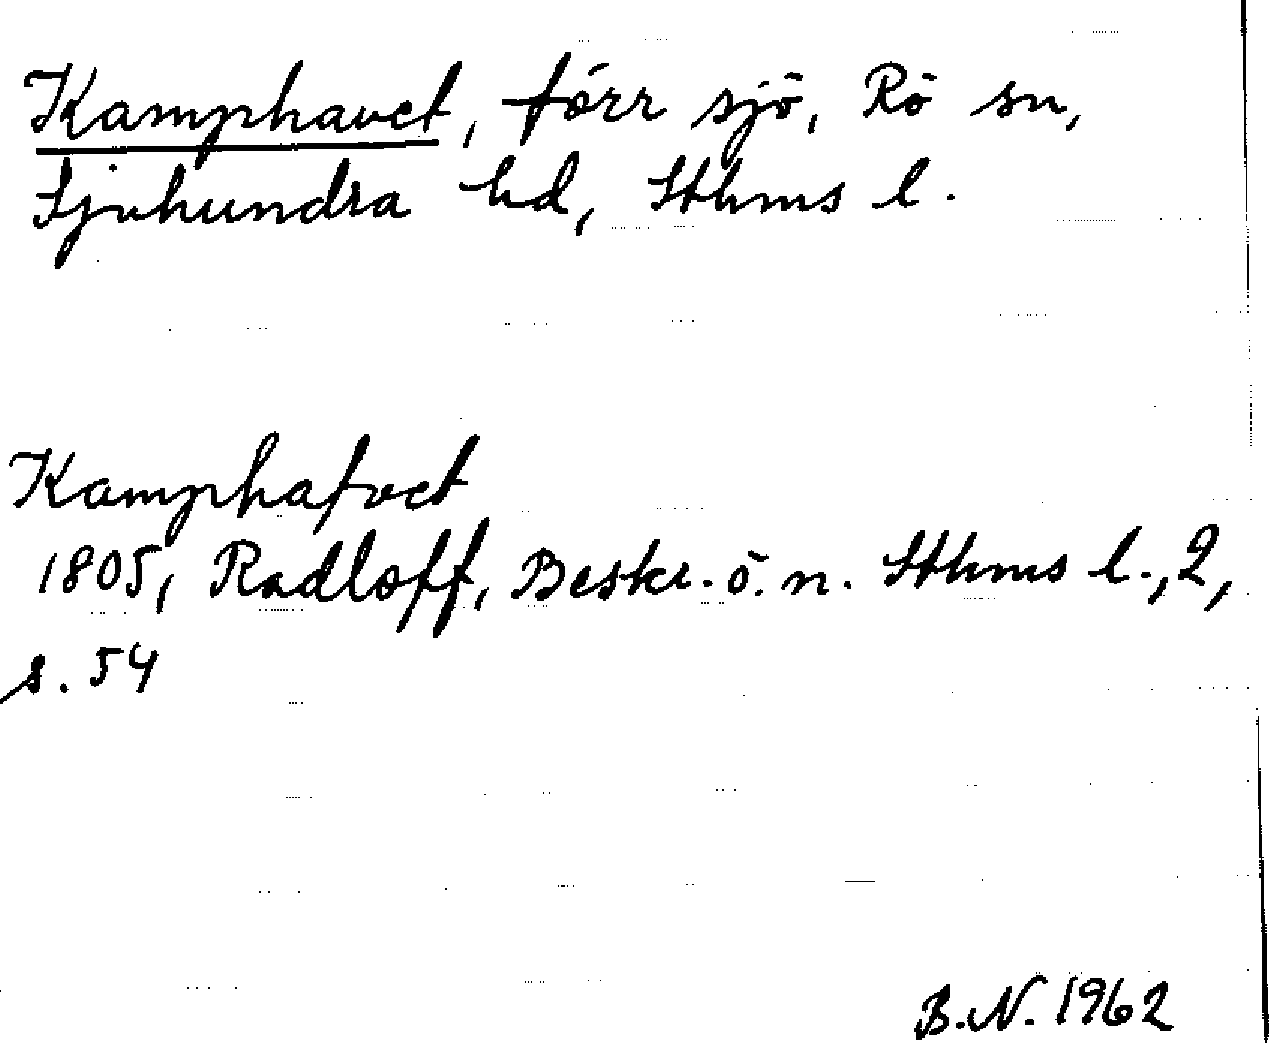 Kamphavet, förr sjö, Rö sn,
Sjuhundra hd, Sthms l.
Kamphafvet
1805, Radloff, Beskr. ö. n. Sthms l., 2,
s. 54
B.N. 1962